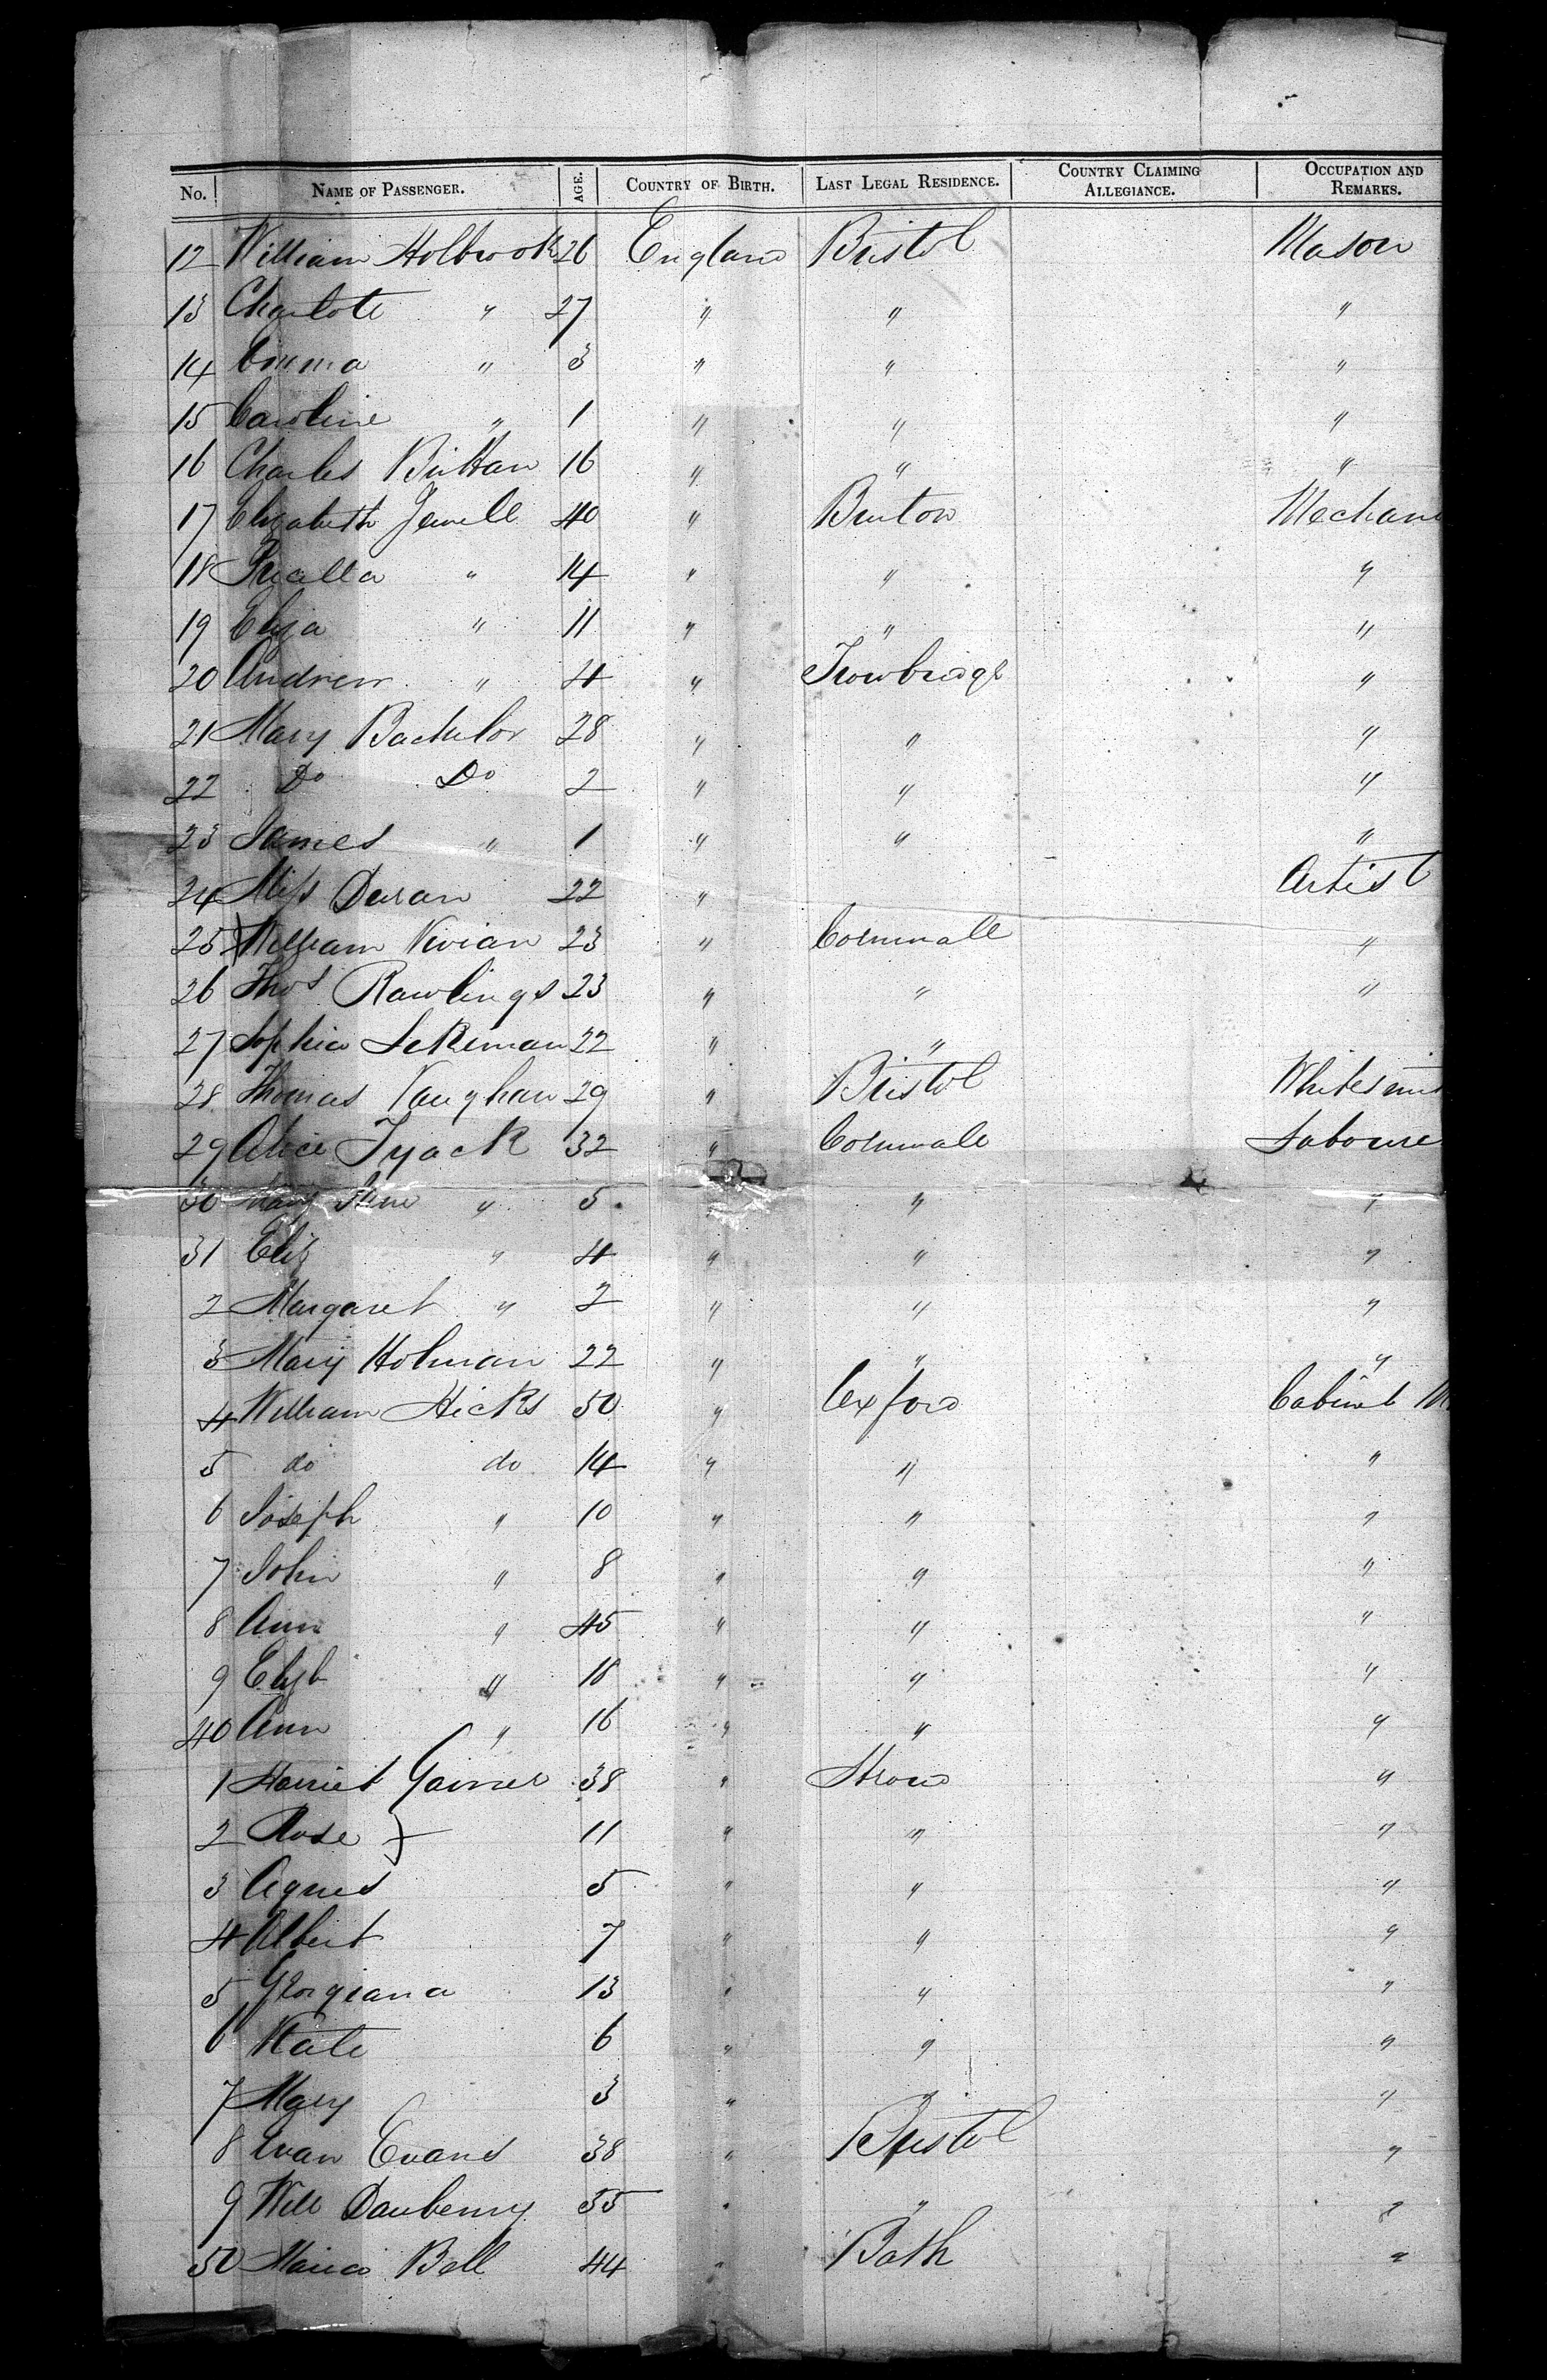 No. NAME OF PASSENGER. AGE. COUNTRY OF BIRTH. LAST LEGAL RESIDENCE. COUNTRY CLAIMING ALLEGIANCE. OCCUPATION AND REMARKS.
12 William Holbrook 26 England Bristol Mason
13 Charlote " 27 " " "
14 Emma " 3 " " "
15 Caroline " 1 " " "
16 Charles Brittan 16 " " "
17 Elizabeth Jewell 40 " Bruton Mechani
18 " 14 " " "
19 Eliza " 11 " " "
20 Andrew " 4 " Trowbridge "
21 Mary Bachelor 28 " " "
22 Do Do 2 " " "
23 James " 1 " " "
24 Miss Duran 22 " Artist
25 William Vivian 23 " Cornwall "
26 Thos Rawlings 23 " " "
27 Sophia 22 " "
28 Thomas Vaughan 29 " Bristol Whitesmit
29 Alice Tyack 32 " Cornwall Laboure
30 Mary Jane " 5 " "
31 Eliz " 4 " " "
2 Margaret " 2 " " "
3 Mary Holman 22 " " "
4 William Hicks 50 " Oxford Cabinet M
5 do do 14 " " "
6 Joseph " 10 " " "
7 John " 8 " " "
8 Ann " 45 " " "
9 Elizb " 18 " " "
40 Ann " 16 " " "
1 Harriet Gainer 38 " Stroud "
2 Rose 11 " " "
3 Agnes 5 " " "
4 Albert 7 " " "
5 Georgiana 13 " " "
6 Kate 6 " " "
7 Mary 3 " " "
8 Evan Evans 38 " Bristol "
9 Will Daubeny 55 " " "
50 Maria Bell 44 " Bath "